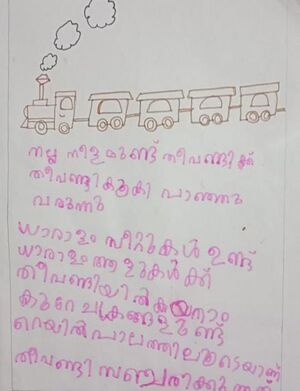 നല്ല നീളമുണ്ട് തീവണ്ടിക്ക്
തീവണ്ടി കൂകി പാഞ്ഞു
വരുന്നു
ധാരാളം സീറ്റുകൾ ഉണ്ട്
ധാരാളം ആളുകൾക്ക്
തീവണ്ടിയിൽ കയറാം
കുറേ ചക്രങ്ങളുമുണ്ട്
റെയിൽ പാലത്തിലൂടെയാണ്
തീവണ്ടി സഞ്ചരിക്കുന്നത്